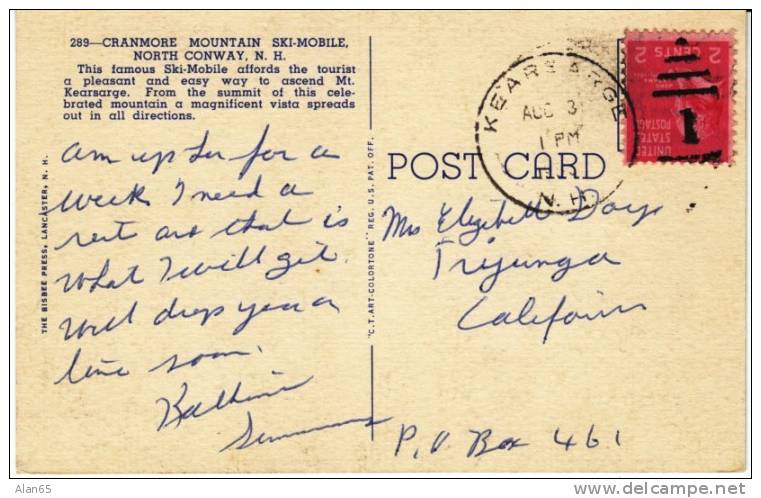 289—CRANMORE MOUNTAIN SKI-MOBILE,
NORTH CONWAY, N. H.
This famous Ski-Mobile affords the tourist
a pleasant and easy way to ascend Mt.
Kearsarge. From the summit of this cele-
brated mountain a magnificent vista spreads
out in all directions.
am up here for a
week I need a
rest and that is
what I will get.
Will drop you a
line soon.
Kathrine
Simmons
THE BISBEE PRESS, LANCASTER, N. H.
"C.T. ART-COLORTONE" REG. U. S. PAT. OFF.
POST CARD
KEARSARGE
AUG 3
1 PM
N. H.
2 CENTS 2
UNITED
STATES
POSTAGE
1
Mrs Elizabeth Days
Tujunga
California
P.O. Box 461
Alan65
www.delcampe.net